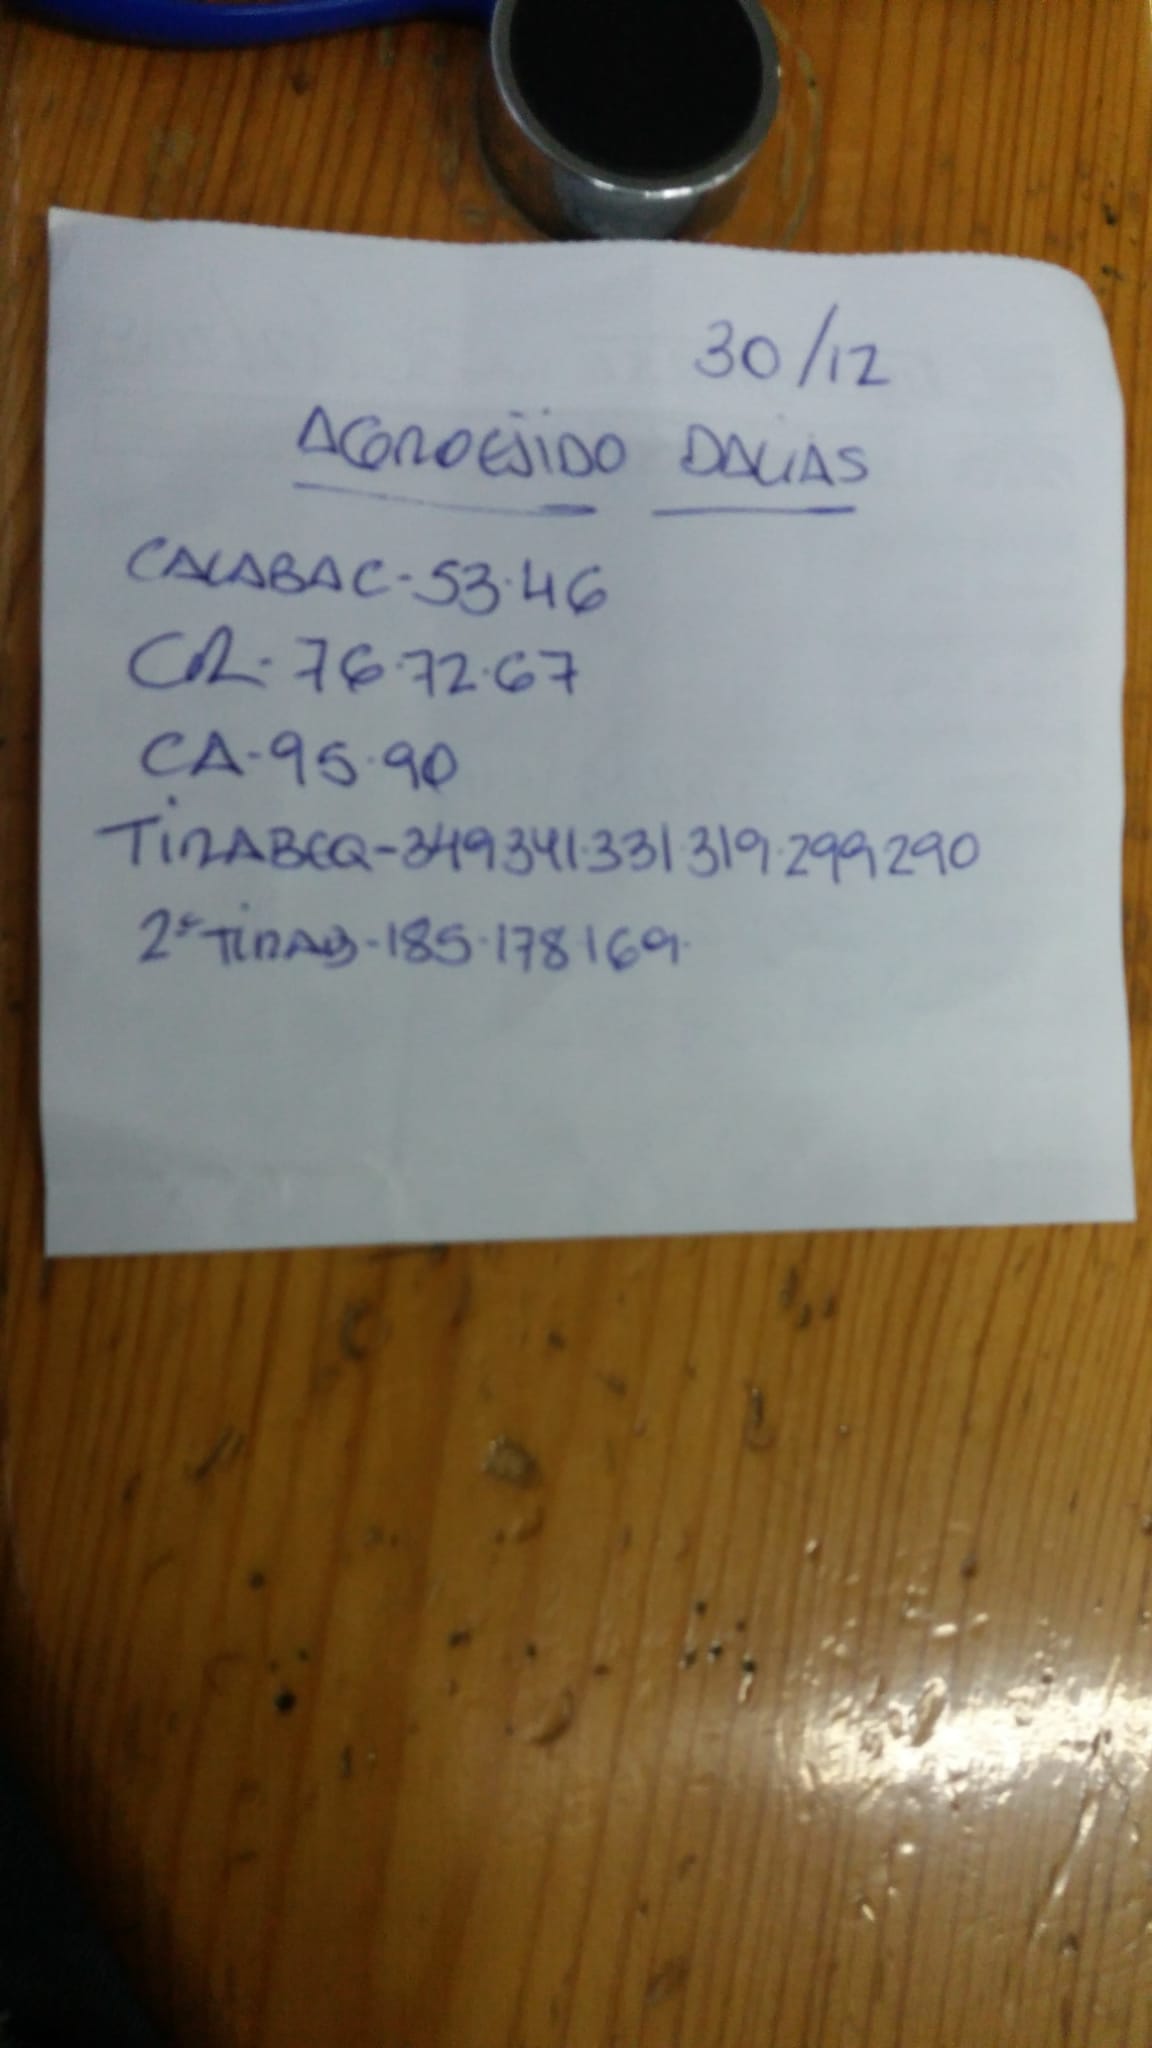 30/12
AGROEJIDO DALIAS
CALABAC-53.46
CR-76.72.67
CA-95.90
TIRABEQ-349341.331319.299290
2ªTIRAB-185.178169.